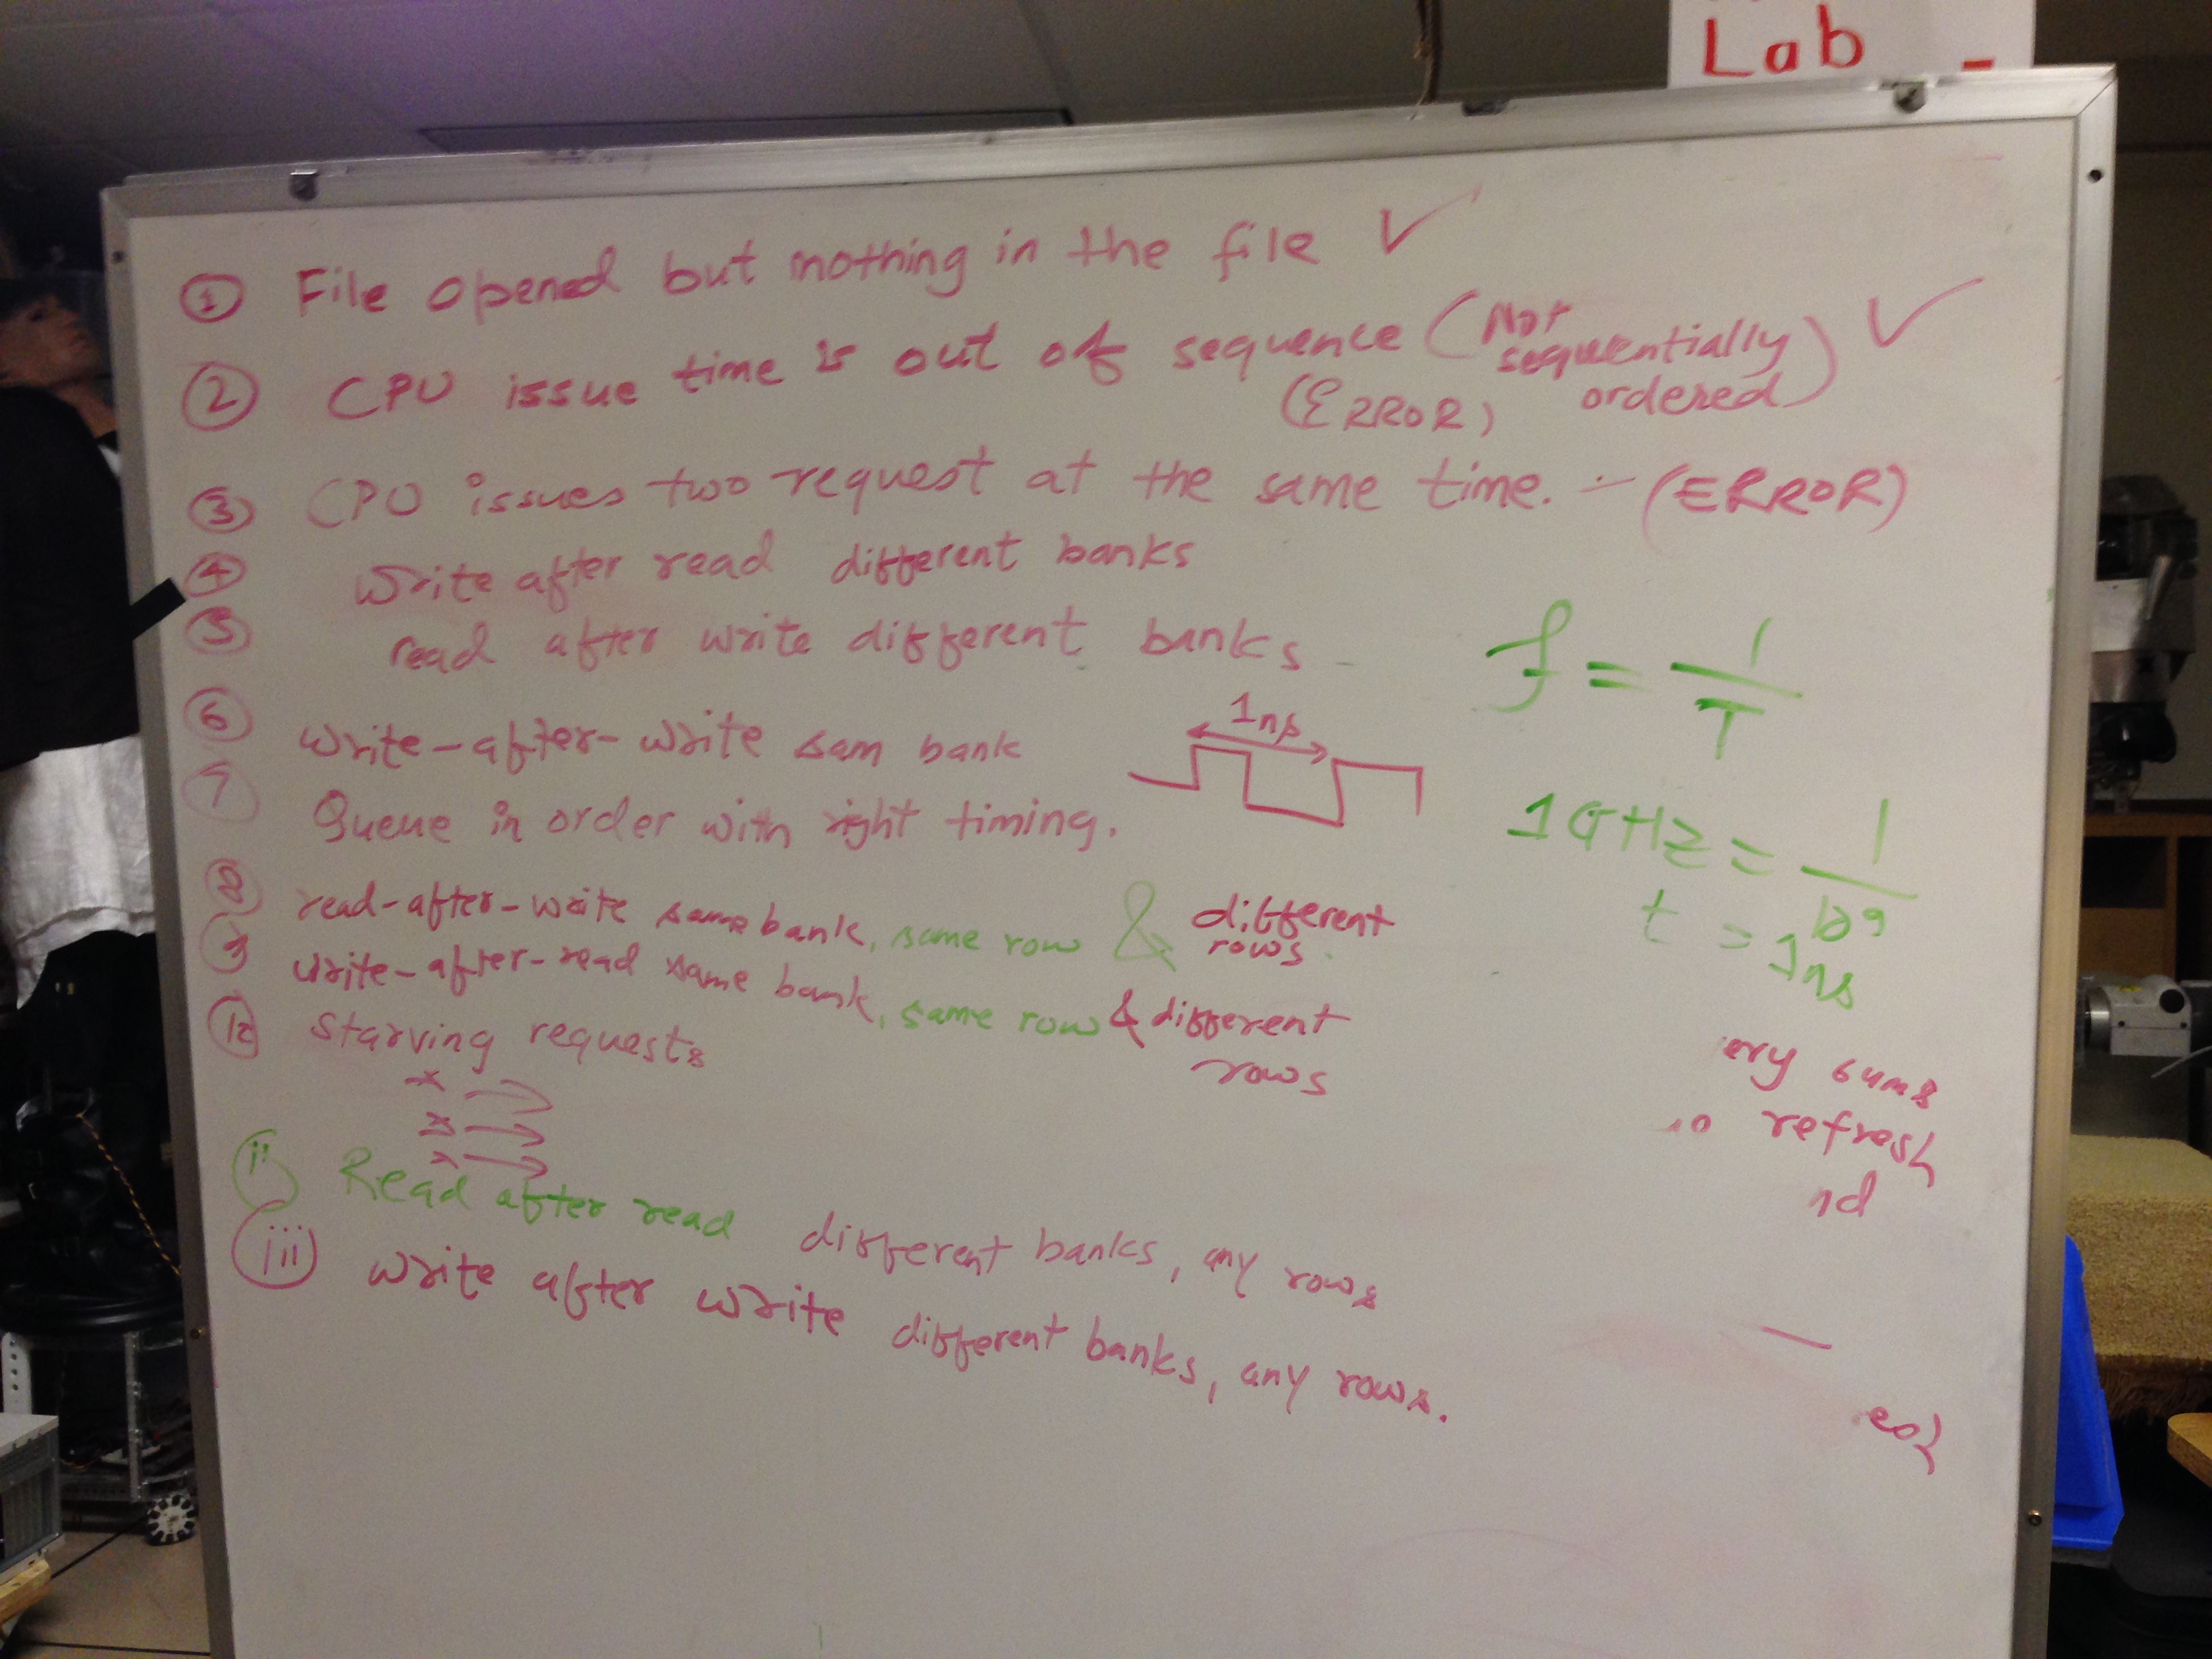 Lab -
① File opened but nothing in the file ✓
② CPU issue time is out of sequence (Not sequentially ordered) ✓
(ERROR)
③ CPU issues two request at the same time. - (ERROR)
④ Write after read different banks
⑤ read after write different banks
⑥ write-after-write sam bank
1ns
7 Queue in order with right timing.
⑧ read-after-write same bank, same row & different rows.
⑨ write-after-read same bank, same row & different rows
⑩ starving requests
ii Read after read different banks, any rows
iii write after write different banks, any rows.
f = 1/T
1GHz = 1/10⁹
t = 1ns
refresh